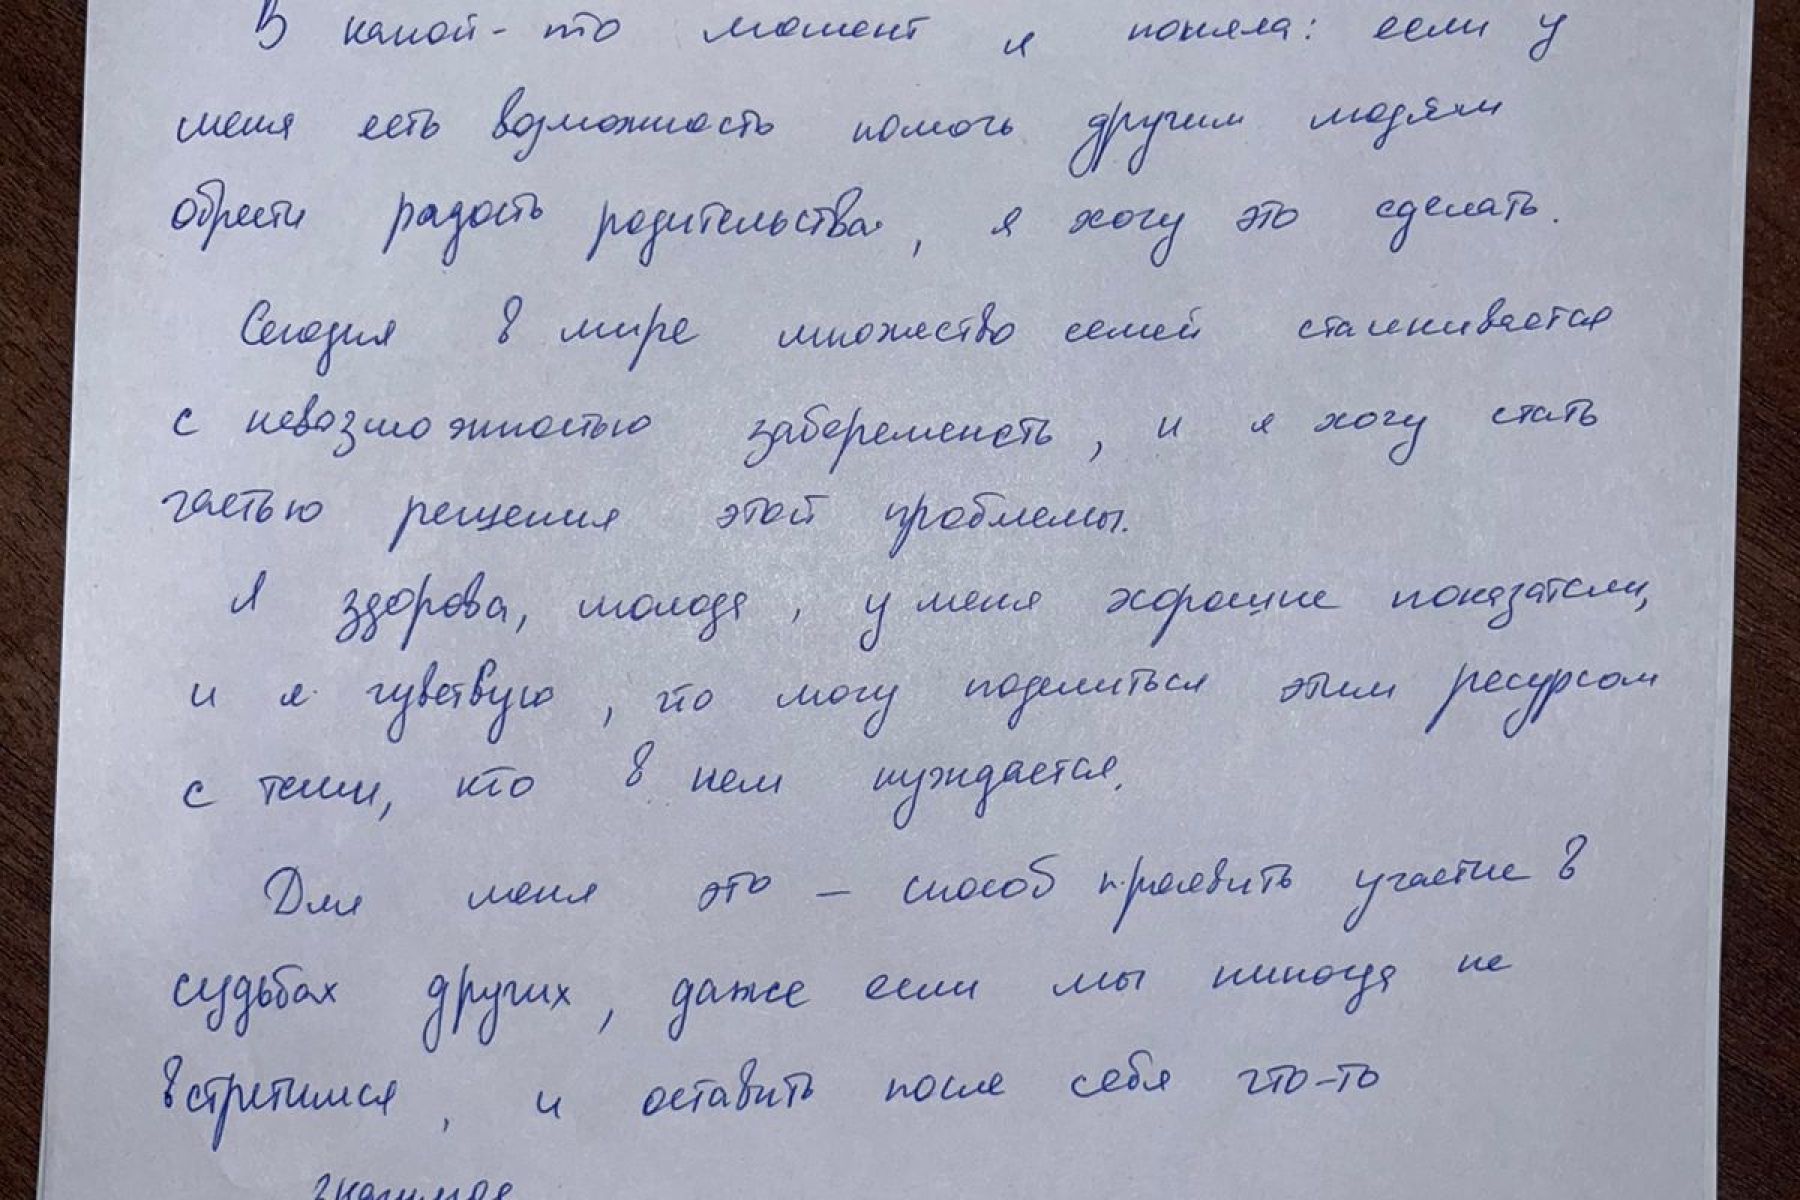 В какой-то момент я поняла: если у
меня есть возможность помочь другим людям
обрести радость родительства, я хочу это сделать.
Сегодня в мире множество семей сталкивается
с невозможностью забеременеть, и я хочу стать
частью решения этой проблемы.
Я здорова, молода, у меня хорошие показатели,
и я чувствую, что могу поделиться этим ресурсом
с теми, кто в нем нуждается.
Для меня это – способ проявить участие в
судьбах других, даже если мы никогда не
встретимся, и оставить после себя что-то
значимое